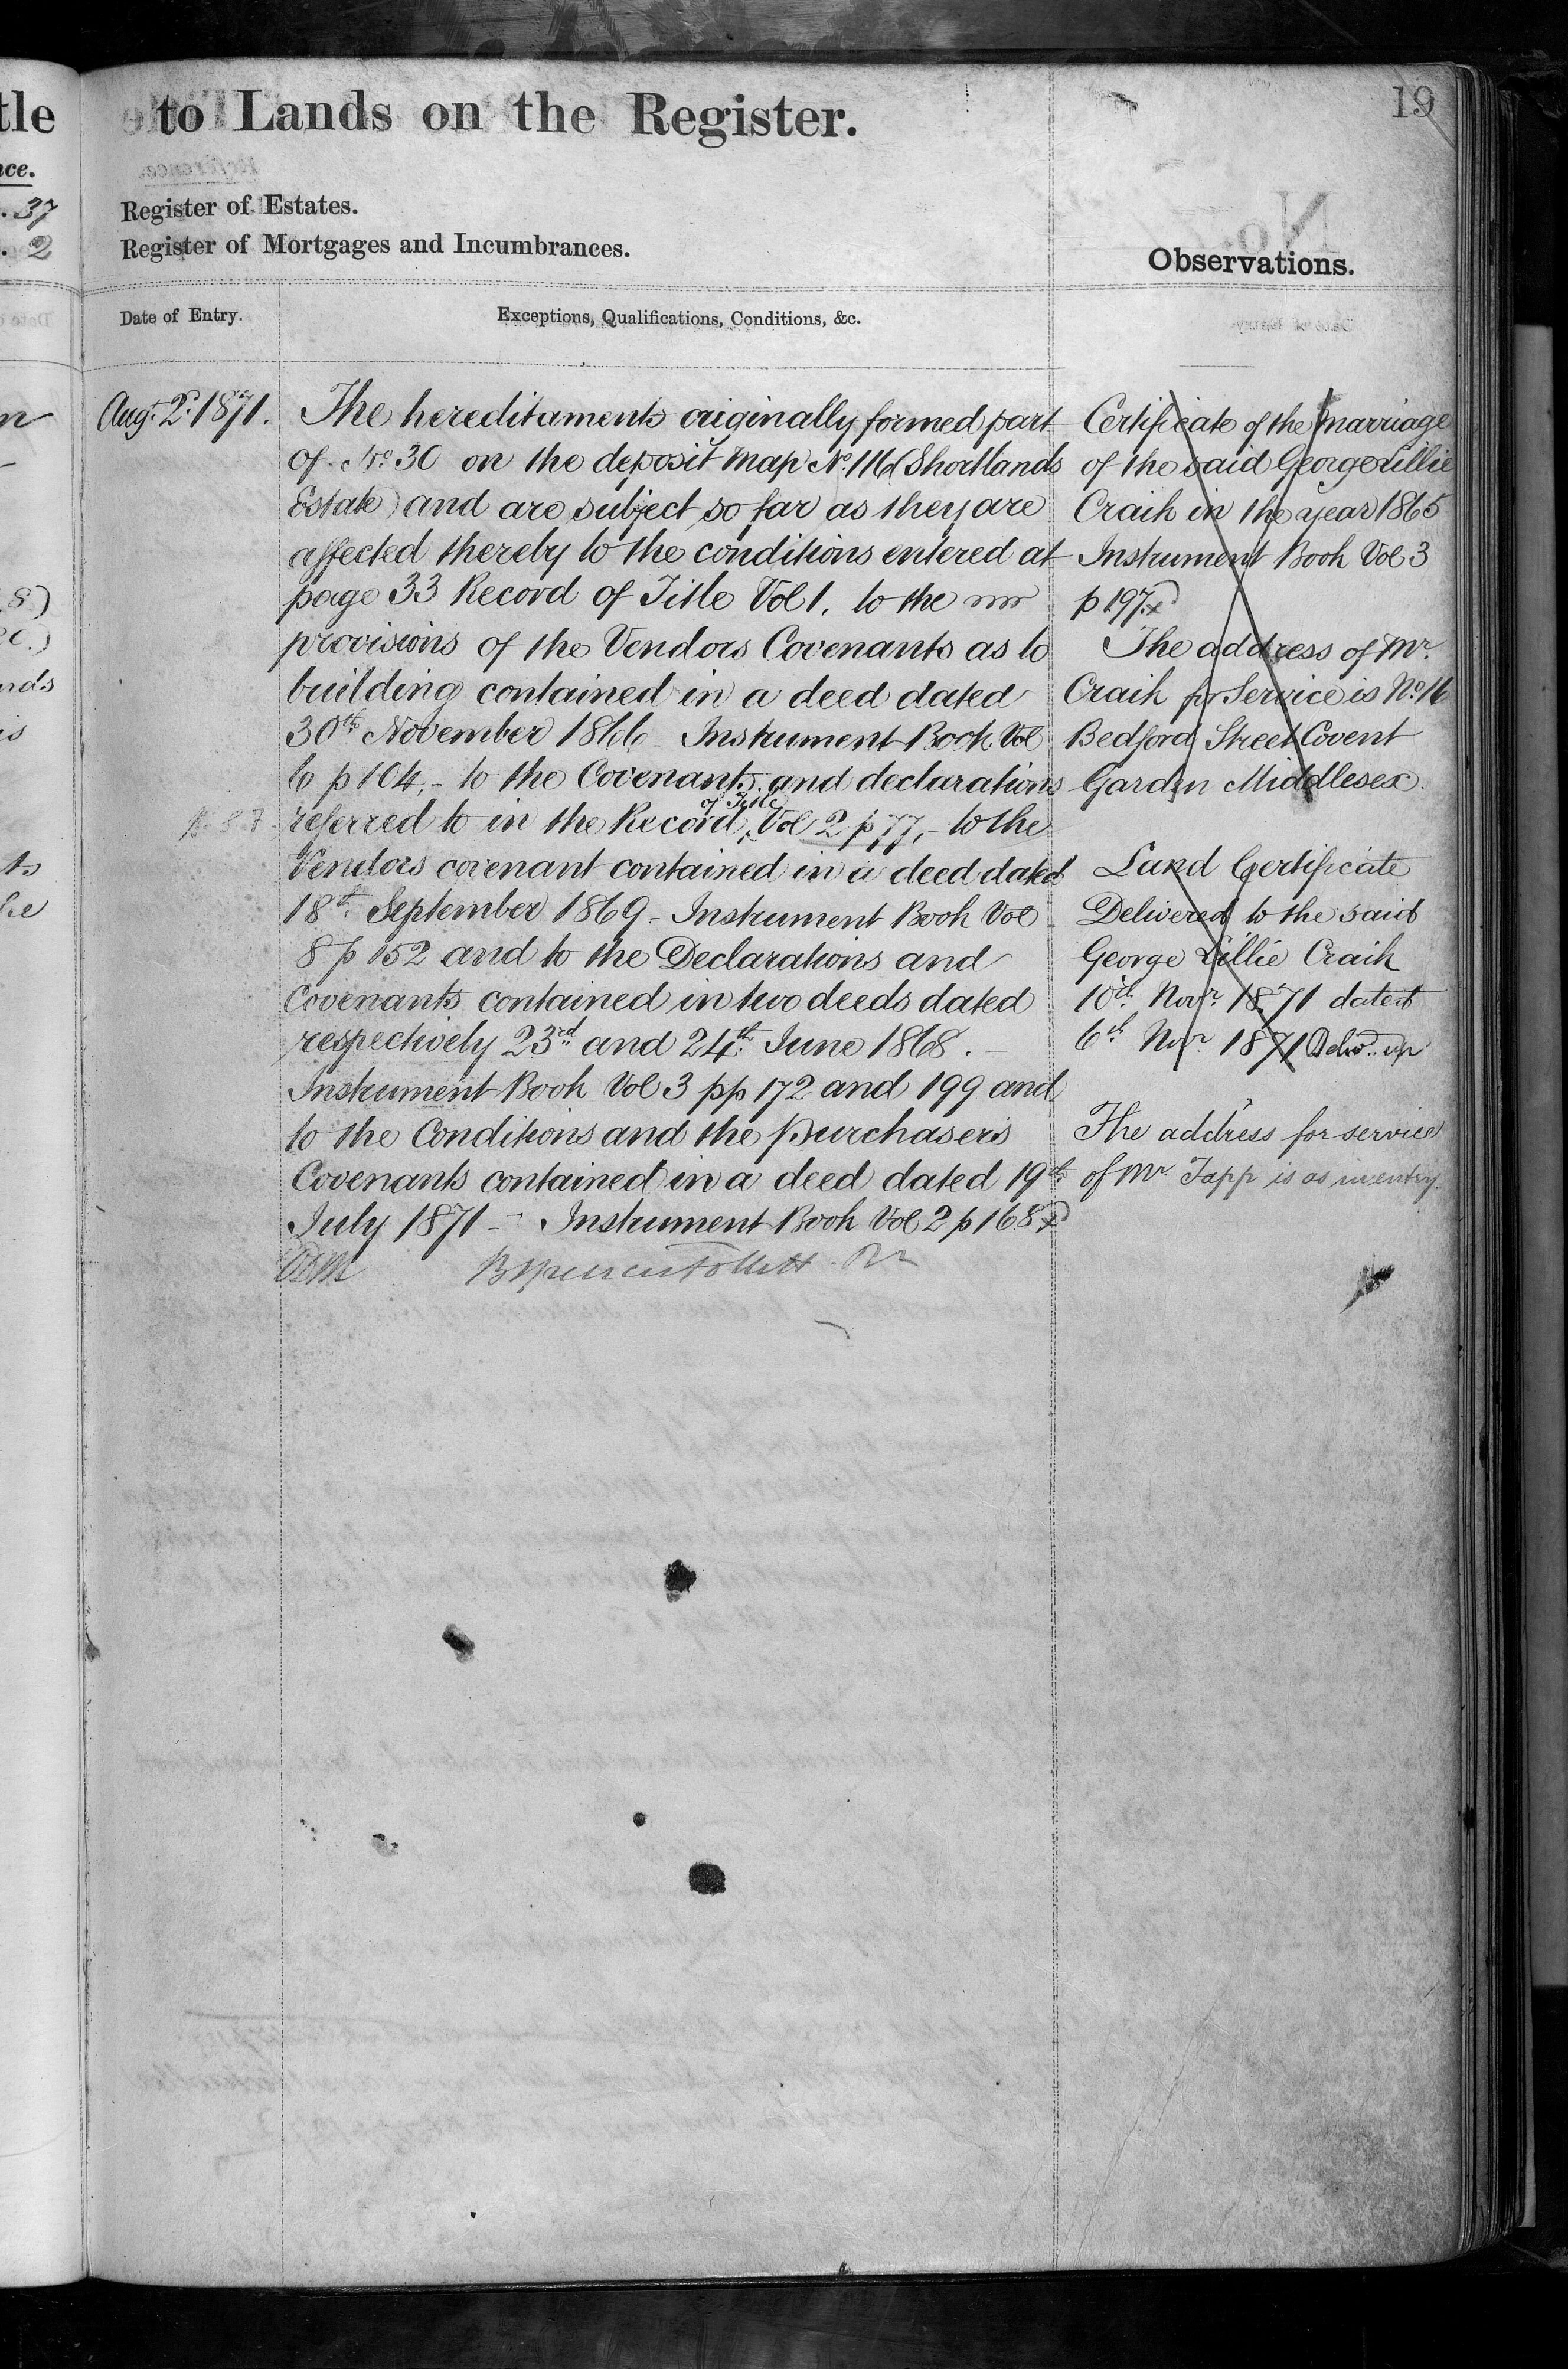 to Lands on the Register.
19
Register of Estates.
Register of Mortgages and Incumbrances.
Observations.
Date of Entry.
Exceptions, Qualifications, Conditions, &c.
Aug. 2d. 1871.
The hereditaments originally formed part
of No. 30 on the deposit map No. 116 (Shortlands
Estate) and are subject so far as they are
affected thereby to the conditions entered at
page 33 Record of Title Vol 1. to the
provisions of the Vendors Covenants as to
building contained in a deed dated
30th November 1866 - Instrument Book Vol
6 p 104, - to the Covenants and declarations
referred to in the Record of Title Vol 2 p 77, - to the
Vendors covenant contained in a deed dated
18th. September 1869 - Instrument Book Vol
8 p 152 and to the Declarations and
Covenants contained in two deeds dated
respectively 23rd and 24th June 1868. -
Instrument Book Vol 3 pp 172 and 199 and
to the Conditions and the Purchasers
Covenants contained in a deed dated 19th
July 1871 - Instrument Book Vol 2 p 168
Certificate of the marriage
of the said George Lillie
Craik in the year 1865
Instrument Book Vol 3
p 197
The address of Mr.
Craik for Service is No. 16
Bedford Street Covent
Garden Middlesex.
Land Certificate
Delivered to the said
George Lillie Craik
10th Novr. 1871 dated
6th Novr 1871 Delvd. up
The address for service
of Mr Tapp is as in entry.
tle
nce.
. 37
. 2